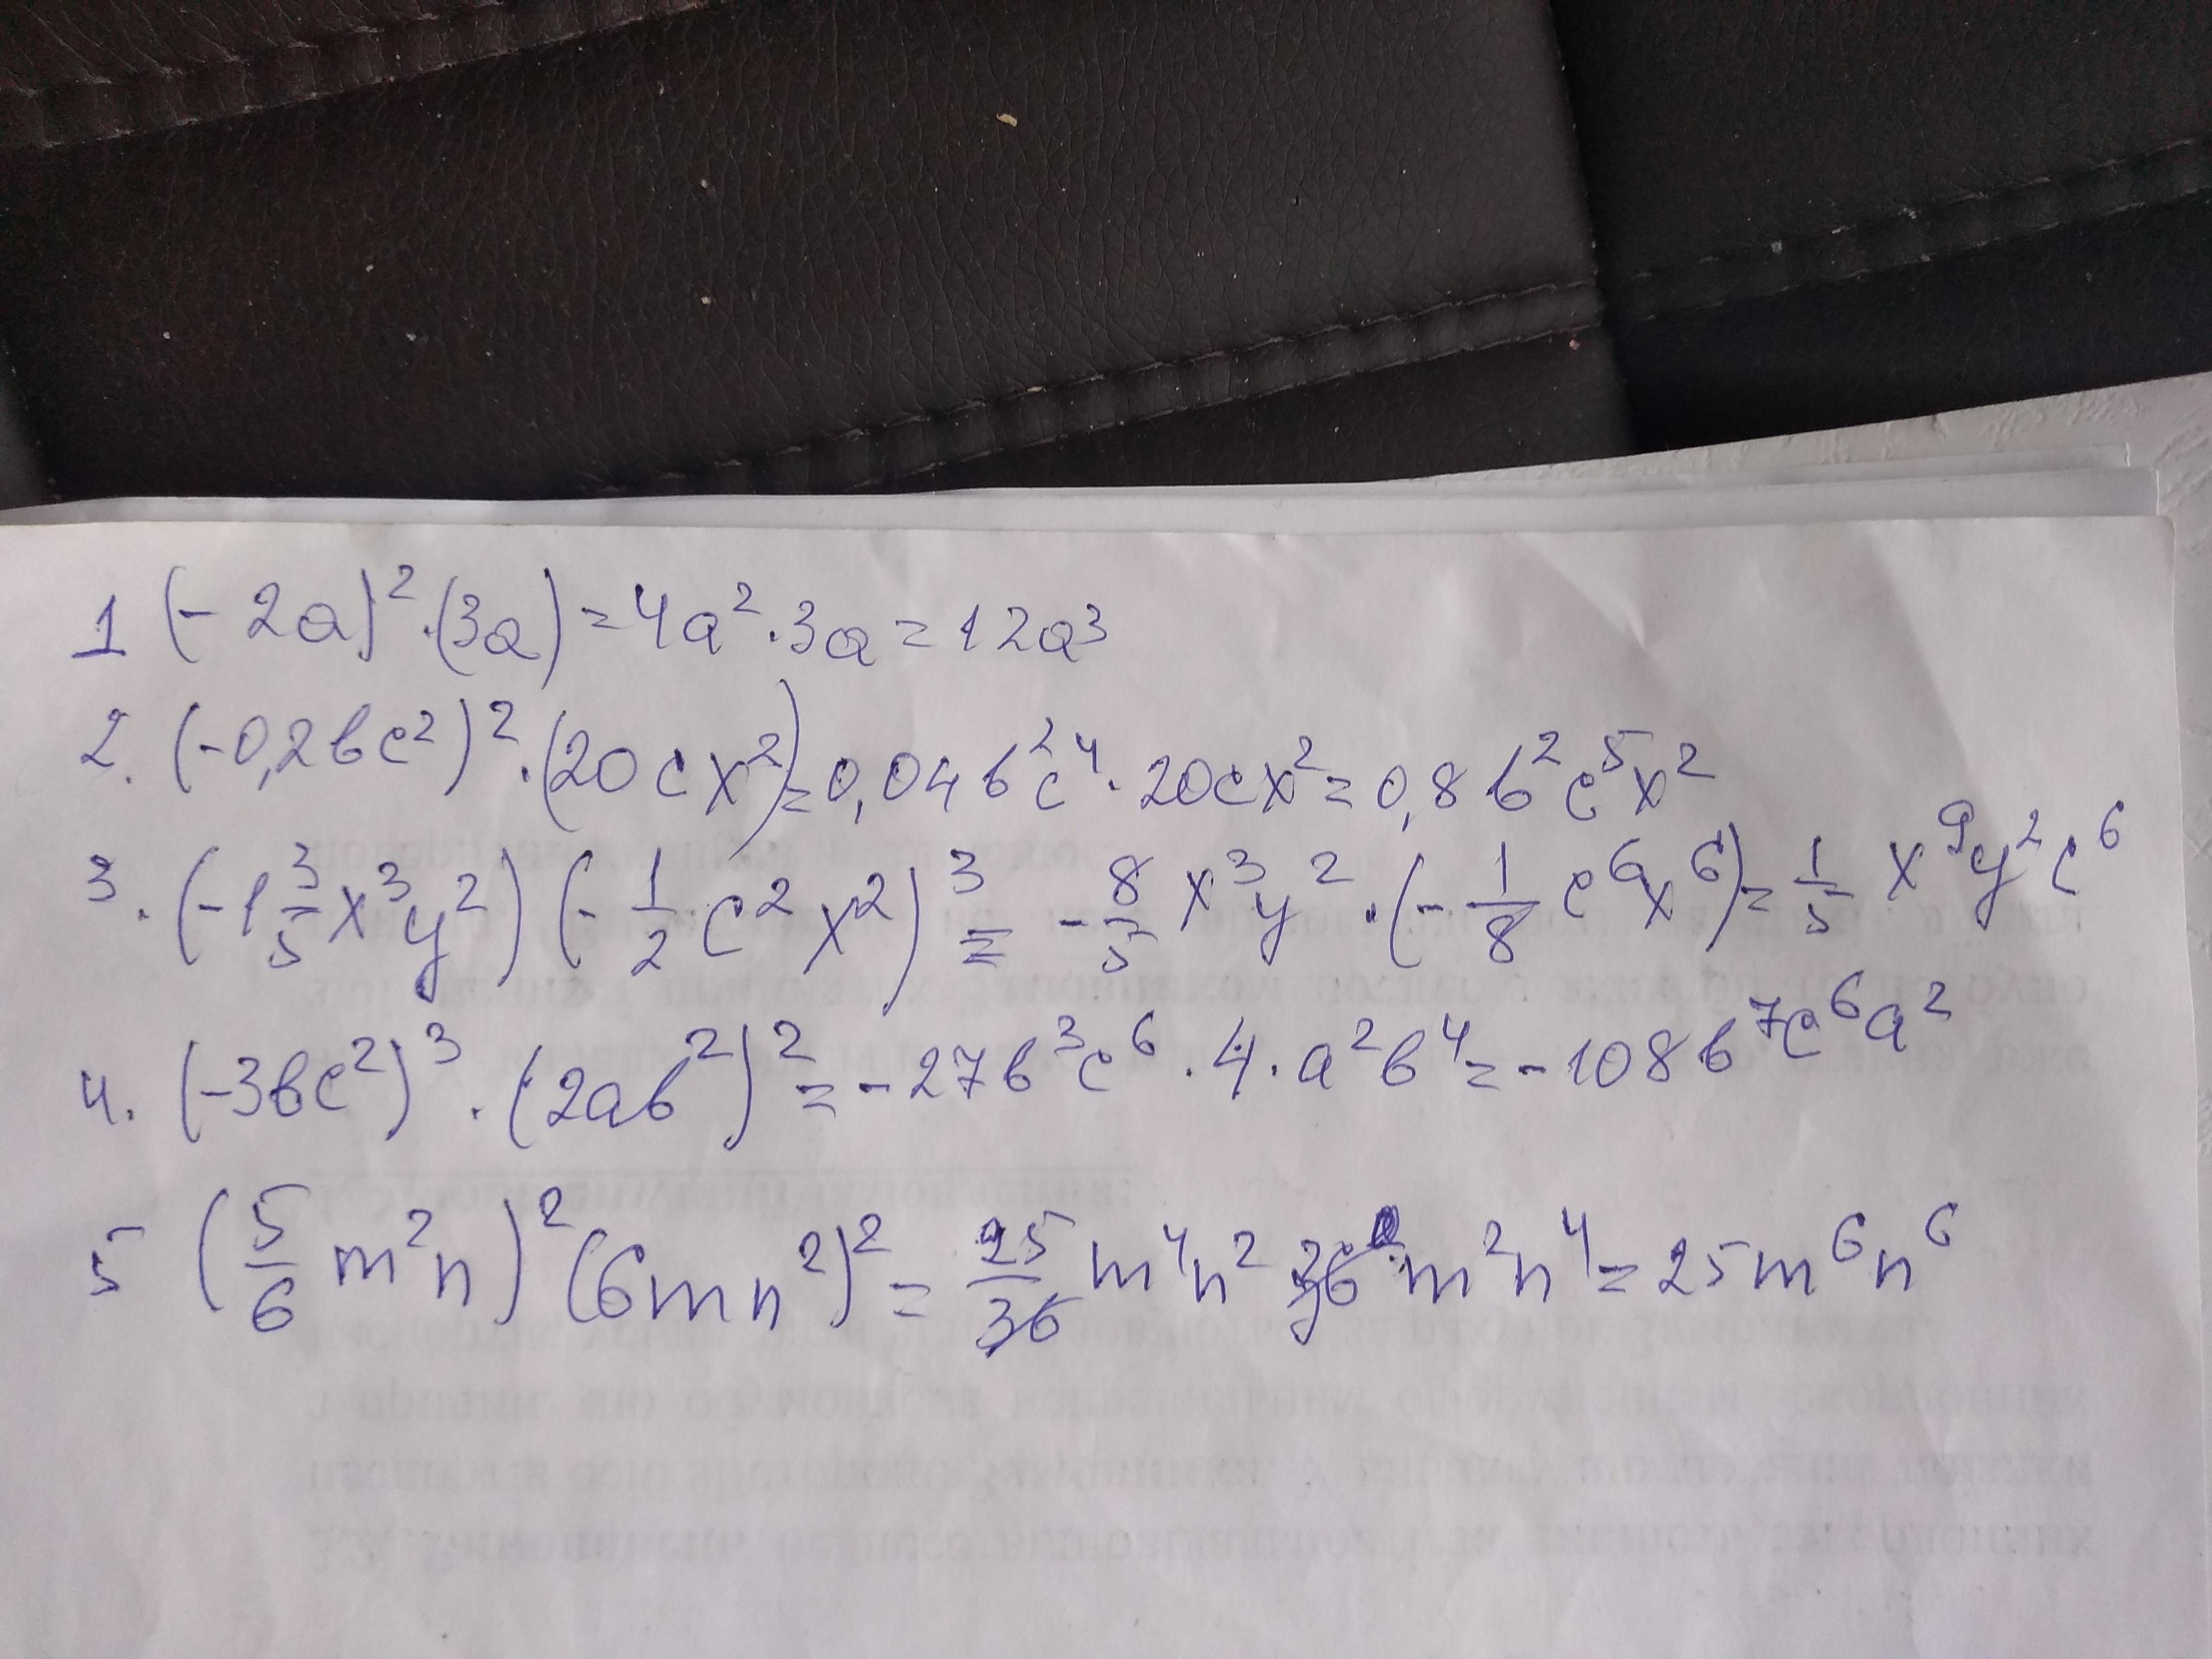 1 (-2a)²·(3a)=4a²·3a=12a³
2. (-0,2bc²)²·(20cx²)=0,04b²c⁴·20cx²=0,8b²c⁵x²
3. (-1 3/5 x³y²)(-1/2 c²x²)³=-8/5 x³y²·(-1/8 c⁶x⁶)=1/5 x⁹y²c⁶
4. (-3bc²)³·(2ab²)²=-27b³c⁶·4·a²b⁴=-108b⁷c⁶a²
5 (5/6 m²n)²(6mn²)²=25/36 m⁴n² 36 m²n⁴=25m⁶n⁶